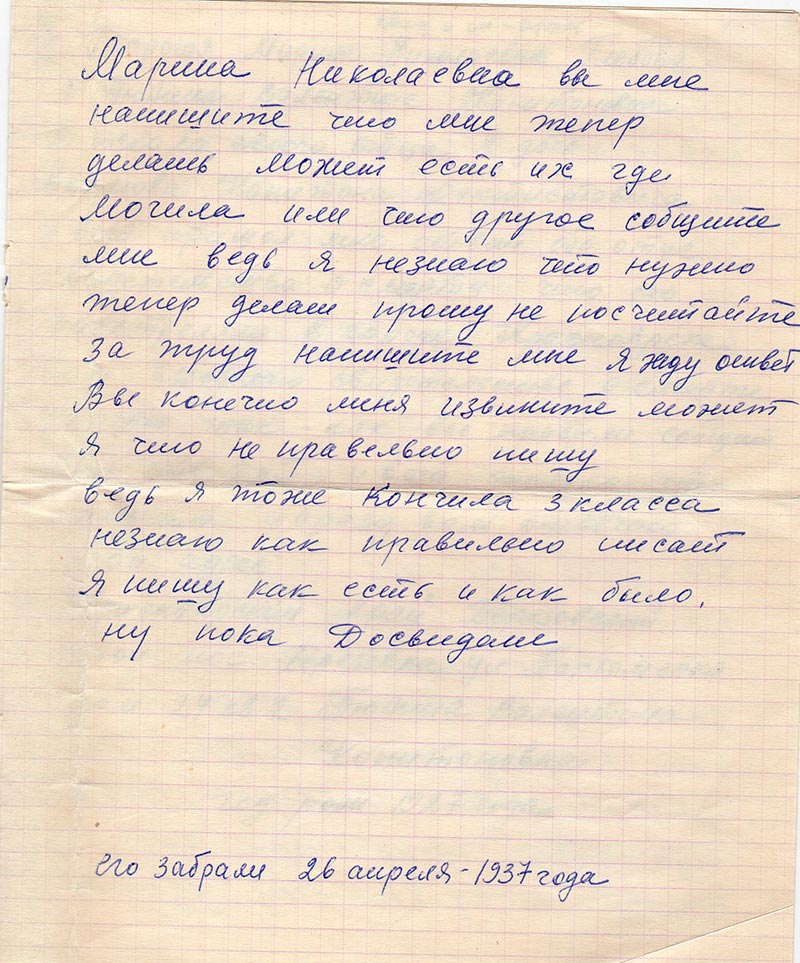 Марина Николаевна вы мне
напишите что мне жепер
делашь может есть их где
Могила или что другое собщите
мне ведь я незнаю что нужно
жепер делаш прошу не посчитайте
за жруд напишите мне я жду ответ
Вы конечно меня извините может
я что не правельно пишу
ведь я тоже Кончила 3 класса
незнаю как правильно писат
я пишу как есть и как было.
ну пока Досвидане
его забрали 26 апреля - 1937 года